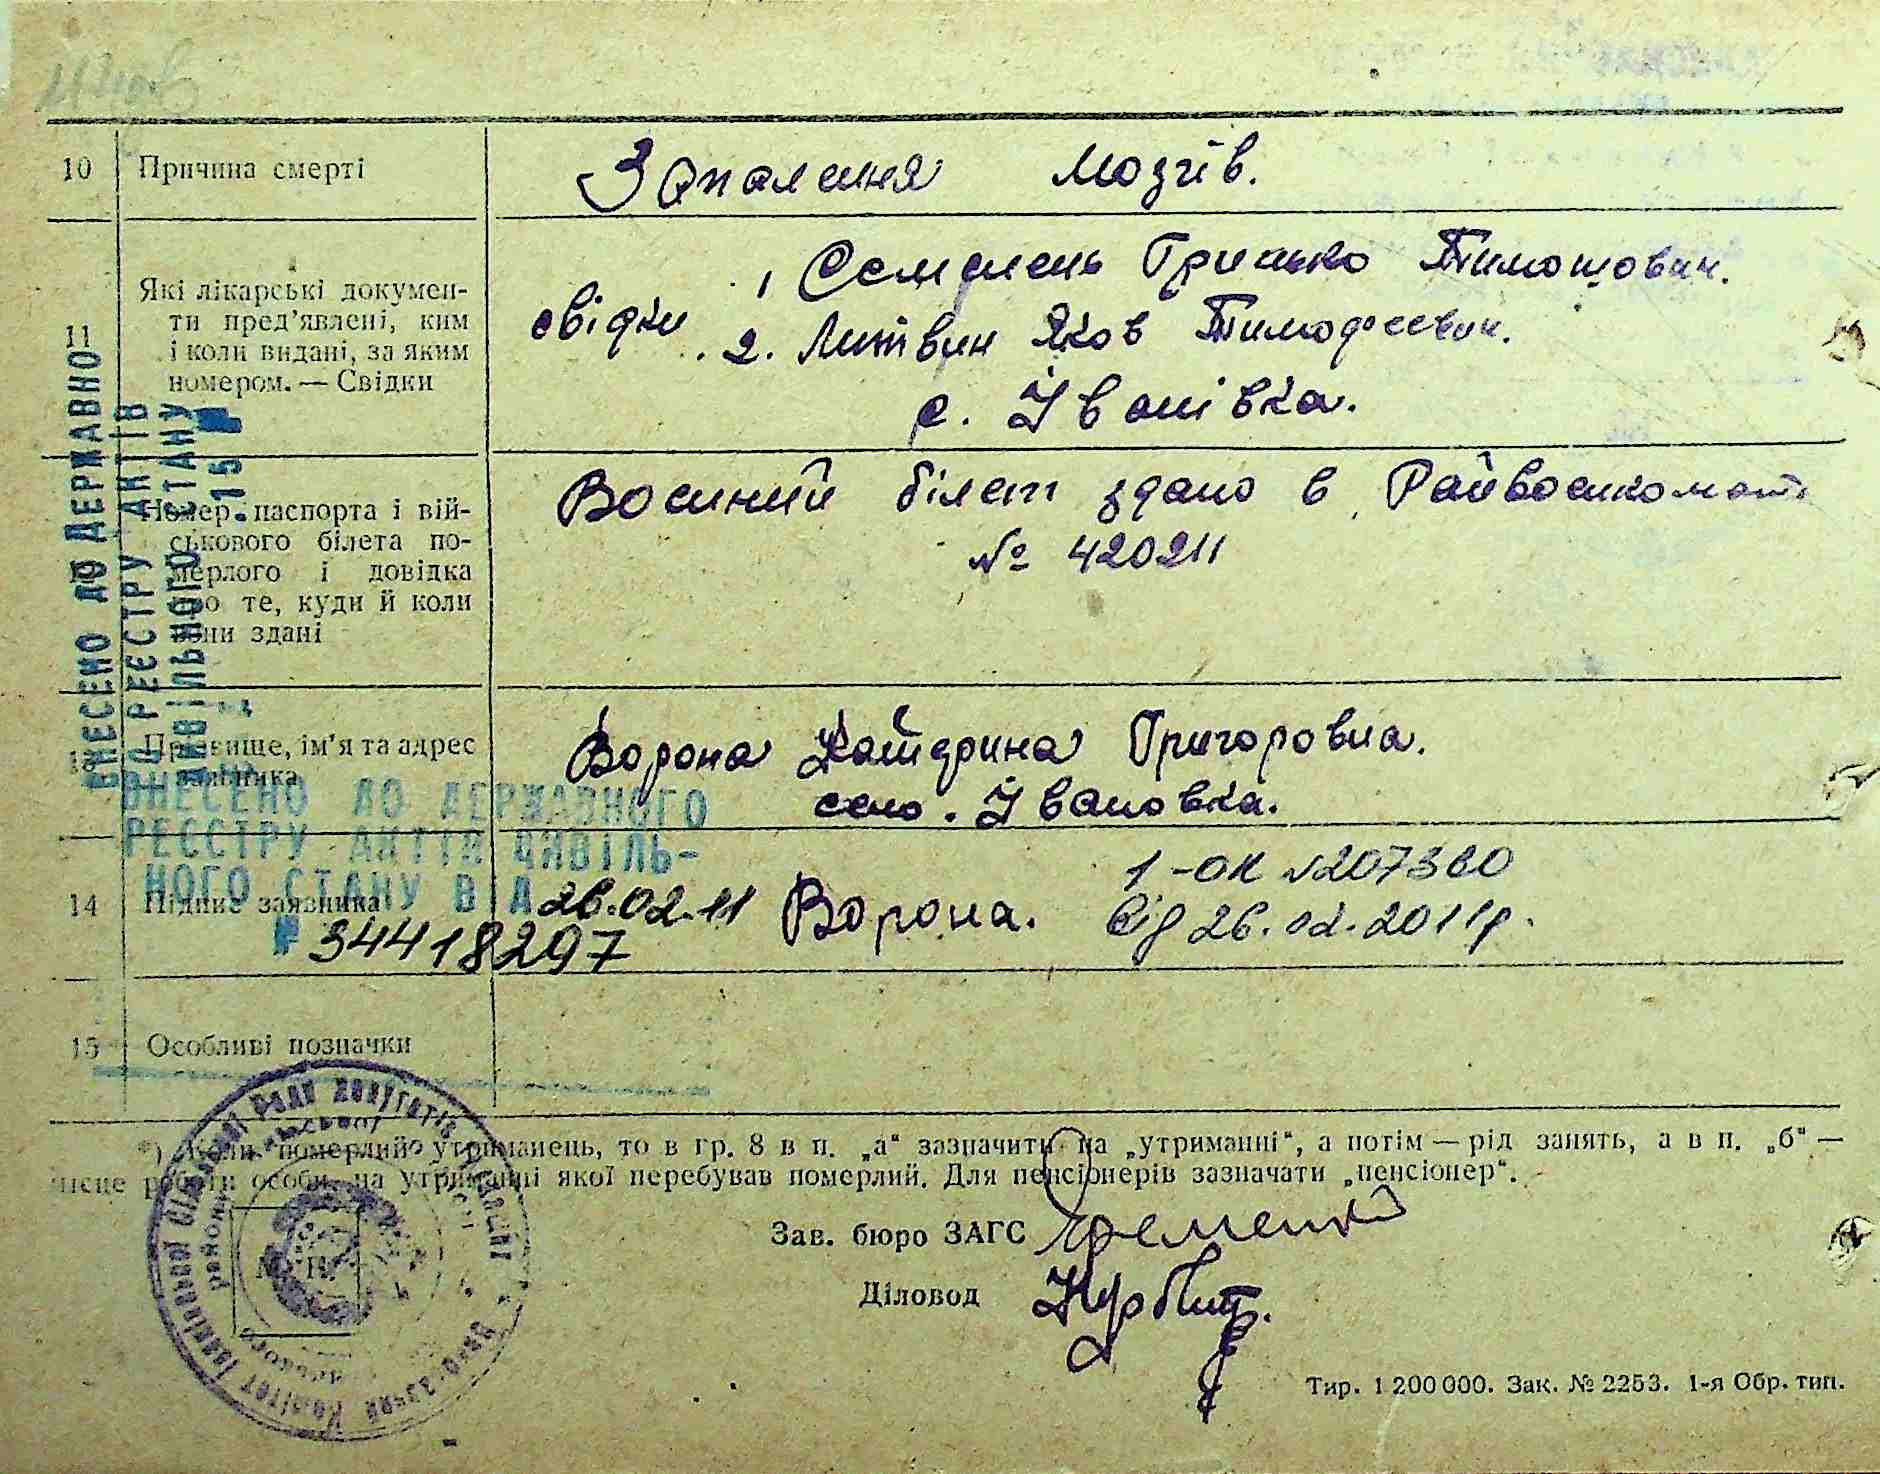 10 Причина смерті
Запалення Мозгів.
11 Які лікарські докумен-
ти пред'явлені, ким
і коли видані, за яким
номером. — Свідки
свідки 1 Грицько Тимошович.
2. Литвин Яков Тимофеевич.
с. Іванівка.
Номер паспорта і вій-
ськового білета по-
мерлого і довідка
про те, куди й коли
вони здані
Воєнний білет здано в Райвоенкомат
№ 420211
13 Прізвище, ім'я та адрес
заявника
Ворона Катерина Григоровна.
село. Івановка.
14 Підпис заявника
Ворона.
1-ОК №207360
від 26.02.2011р.
ВНЕСЕНО ДО ДЕРЖАВНОГО
РЕЄСТРУ АКТІВ ЦИВІЛЬ-
НОГО СТАНУ ВІД 26.02.11
№ 34418297
15 Особливі позначки
ВНЕСЕНО ДО ДЕРЖАВНО
ГО РЕЄСТРУ АКТІВ
ЦИВІЛЬНОГО СТАНУ
*) Коли померлий утриманець, то в гр. 8 в п. „а“ зазначити на „утриманні“, а потім — рід занять, а в п. „б“ —
місце роботи особи, на утриманні якої перебував померлий. Для пенсіонерів зазначати „пенсіонер“.
Зав. бюро ЗАГС
Діловод
М. П.
Тир. 1 200 000. Зак. № 2253. 1-я Обр. тип.